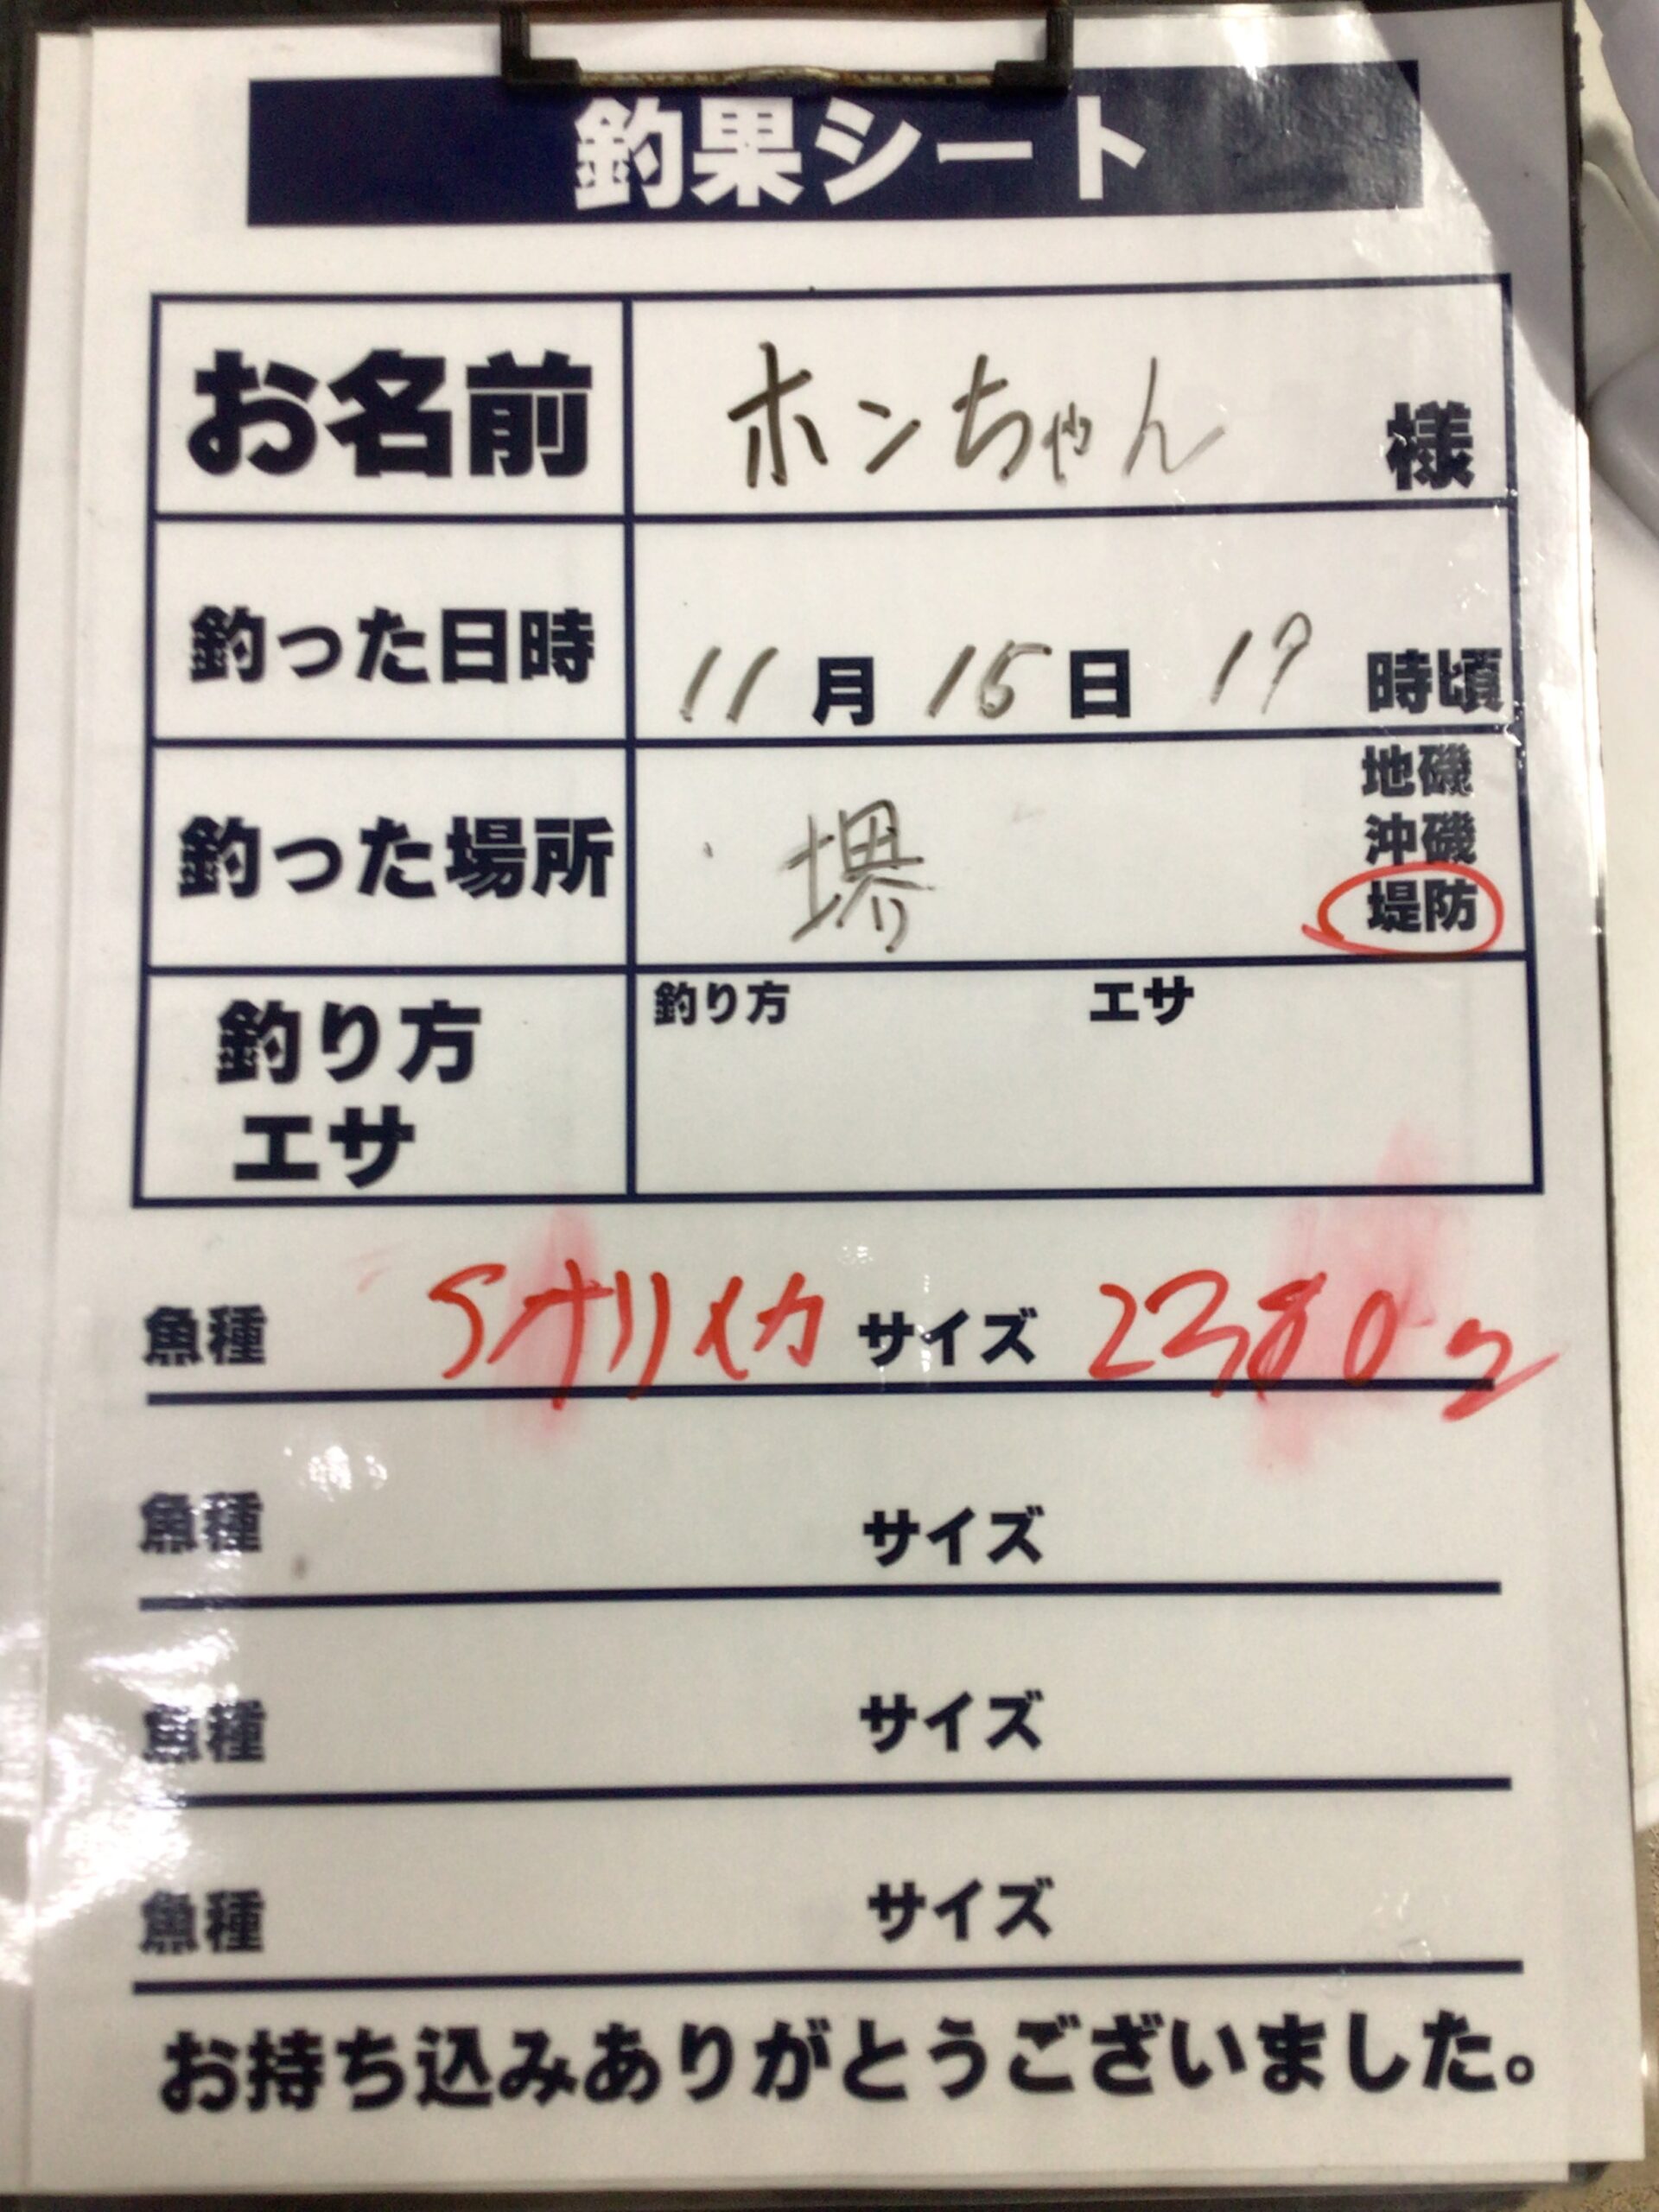 釣果シート
お名前 ホンちゃん 様
釣った日時 11月15日 17時頃
釣った場所 堺 地磯 沖磯 堤防
釣り方 エサ 釣り方 エサ
魚種 アオリイカ サイズ
魚種 サイズ
魚種 サイズ
魚種 サイズ
お持ち込みありがとうございました。